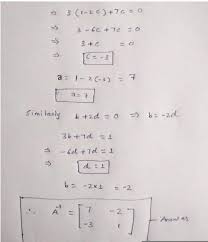 ⇒ 3(1-2c)+7c=0
⇒ 3-6c+7c=0
⇒ 3+c = 0
⇒ c=-3
a=1-2(-3)=7
a=7
Similarly b+2d=0 ⇒ b=-2d
3b+7d=1
⇒ -6d+7d=1
⇒ d=1
b=-2×1=-2
∴ A⁻¹ = [7 -2
-3 1] — Answer